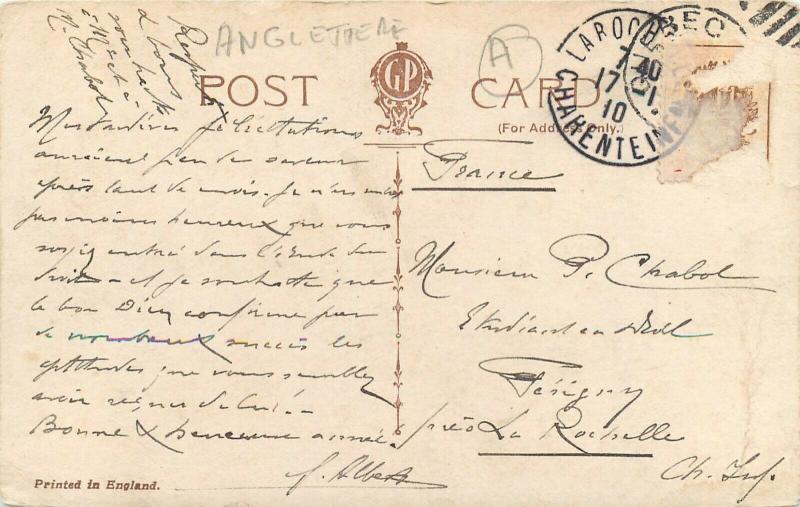 ANGLETERRE
A
Respects
& bons
souhaits
à M. et à
M. Chabol
POST CARD
GP
(For Address Only.)
LA ROCHE
7 40
17 1
10
CHARENTE INF
Mes tardives félicitations
auraient peu de saveur
après tant de mois. Je n'en suis
pas moins heureux que vous
soyez entré dans l'Etude du
droit - et je souhaite que
le bon Dieu confirme par
de nombreux succès les
aptitudes que vous semblez
avoir reçues de Lui. -
Bonne & heureuse année.
f. Albert
France
Monsieur P. Chabol
Etudiant en Droit
Périgny
près La Rochelle
Ch. Inf.
Printed in England.